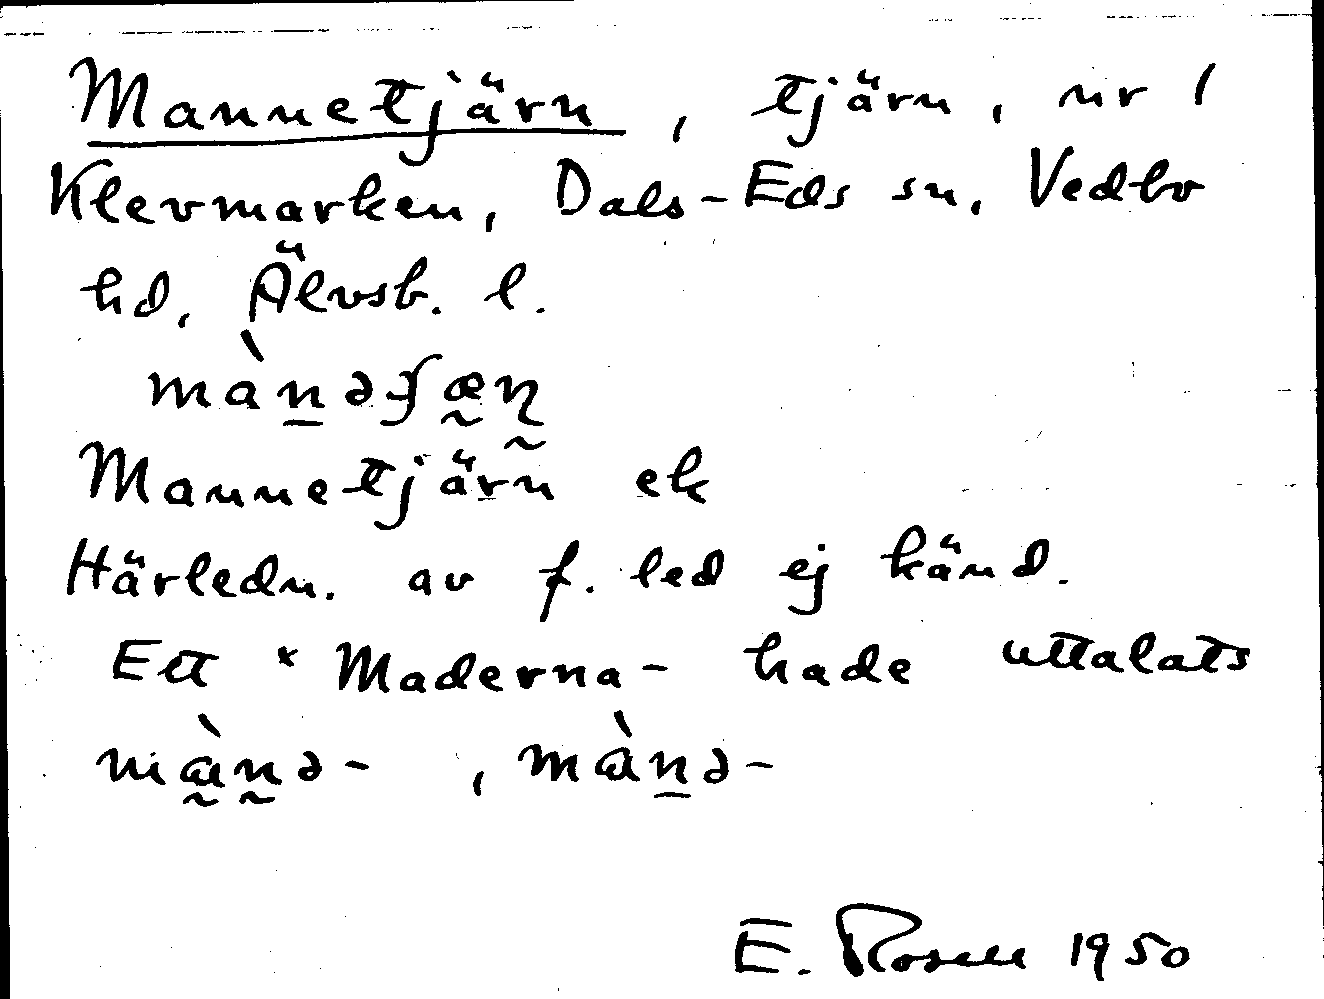 Mannetjärn, tjärn, nr 1
Klevmarken, Dals-Eds sn, Vedbo
hd, Älvsb. l.
màn̠əʃæ̰ɳ̰
Mannetjärn ek
Härledn. av f. led ej känd.
Ett *Maderna- hade uttalats
mɑ̰̀n̰ə-, mɑ̀n̠ə-
E. Rosell 1950